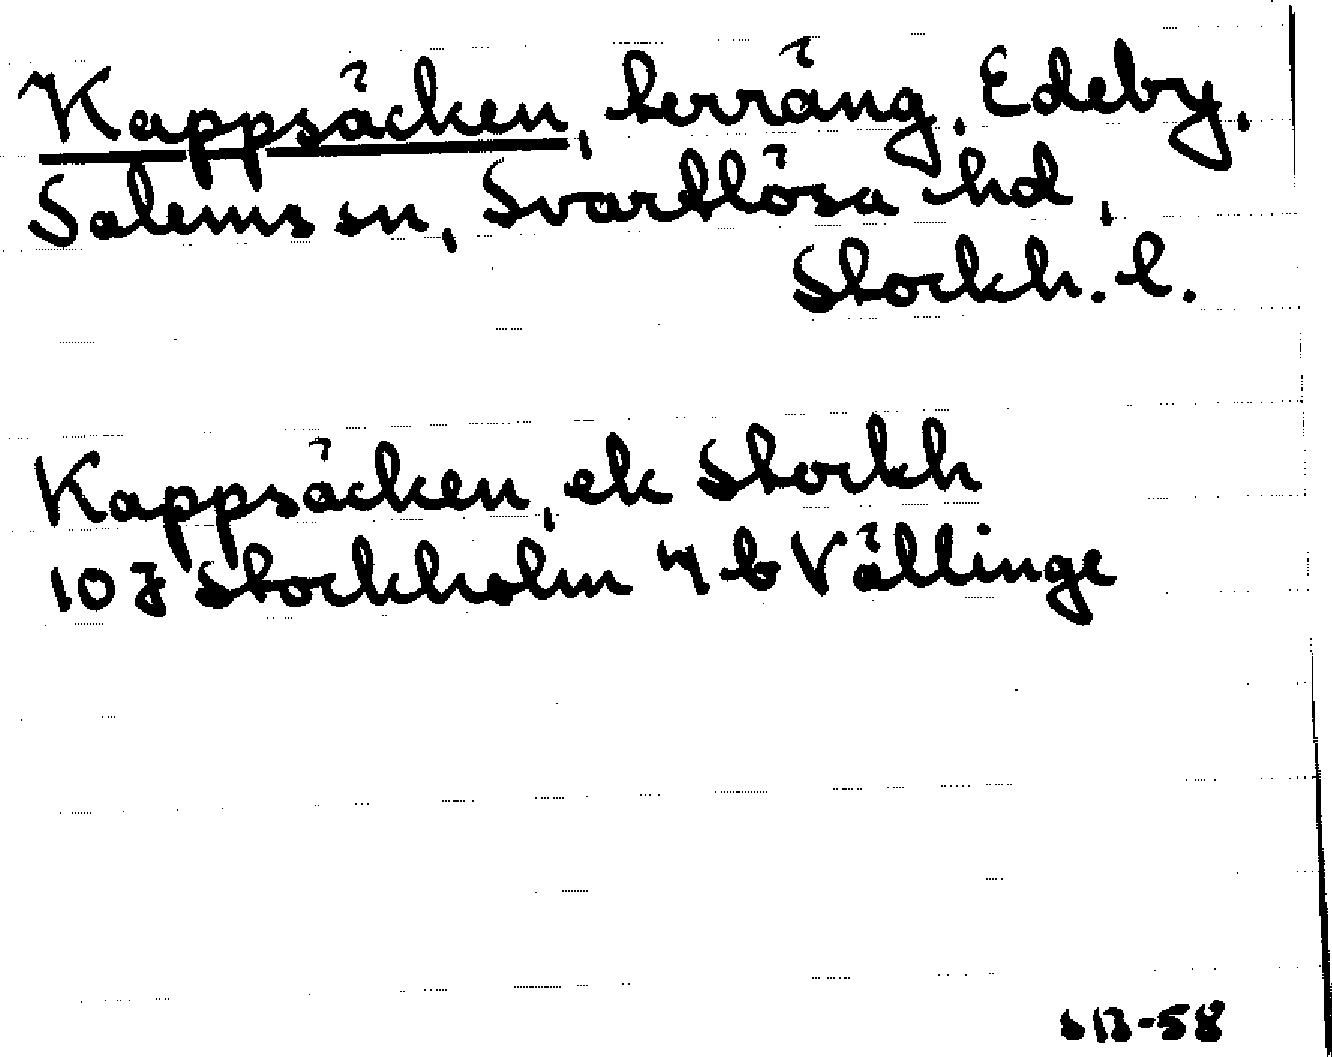 Kappsäcken, terräng, Edeby,
Salems sn, Svartlösa hd,
Stockh. l.
Kappsäcken, ek Stockh
10J Stockholm 4 b Vällinge